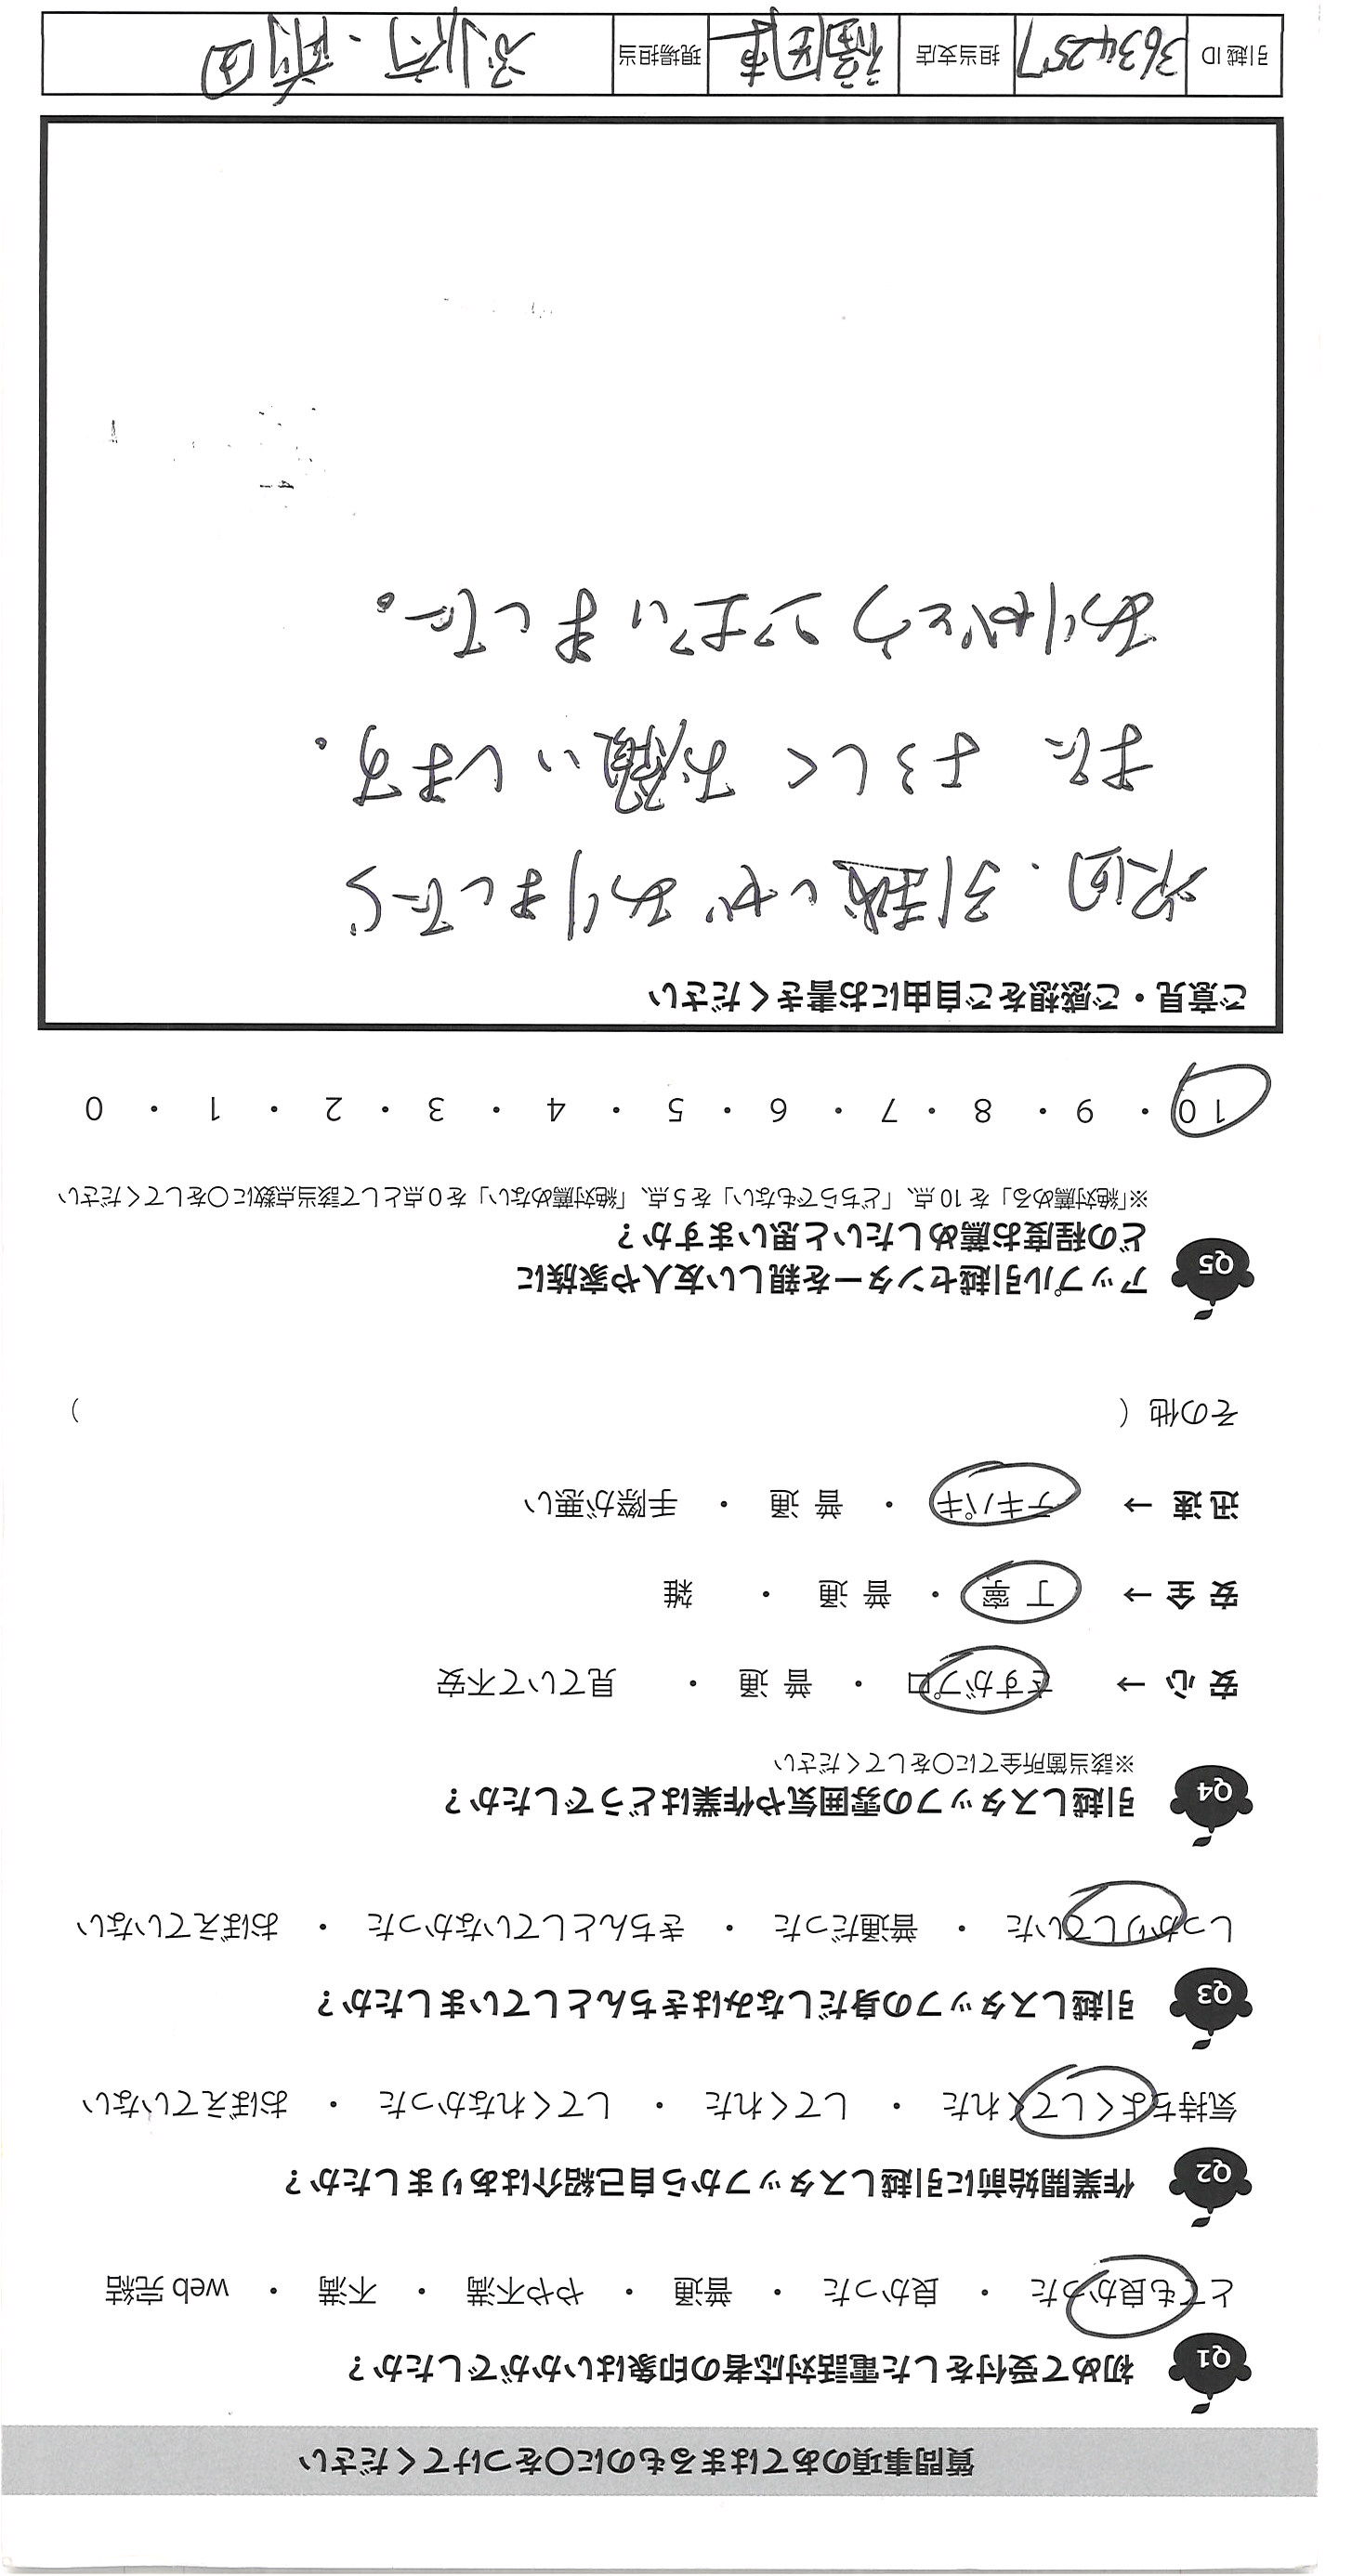 質問事項のあてはまるものに○をつけてください
Q1 初めて受付をした電話対応者の印象はいかがでしたか？
とても良かった ・ 良かった ・ 普通 ・ やや不満 ・ 不満 ・ web 完結
Q2 作業開始前に引越しスタッフから自己紹介はありましたか？
気持ちよくしてくれた ・ してくれた ・ してくれなかった ・ おぼえていない
Q3 引越しスタッフの身だしなみはきちんとしていましたか？
しっかりしていた ・ 普通だった ・ きちんとしていなかった ・ おぼえていない
Q4 引越しスタッフの雰囲気や作業はどうでしたか？
※該当箇所全てに○をしてください
安 心 → さすがプロ ・ 普 通 ・ 見ていて不安
安 全 → 丁 寧 ・ 普 通 ・ 雑
迅 速 → テキパキ ・ 普 通 ・ 手際が悪い
その他（ ）
Q5 アップル引越センターを親しい友人や家族に
どの程度お薦めしたいと思いますか？
※「絶対薦める」を 10 点、「どちらでもない」を 5 点、「絶対薦めない」を 0 点として該当点数に○をしてください
10 ・ 9 ・ 8 ・ 7 ・ 6 ・ 5 ・ 4 ・ 3 ・ 2 ・ 1 ・ 0
ご意見・ご感想をご自由にお書きください
次回、引越しがありましたら
また よろしく お願いします。
ありがとうございました。
引越 ID 3634257 担当支店 福岡東 現場担当